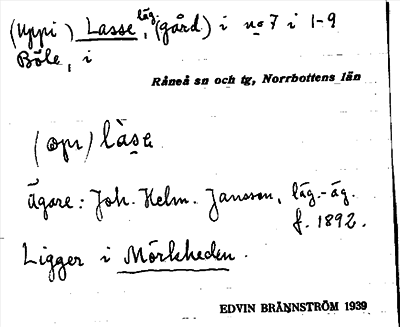 (Uppi) Lasse, läg. (gård) i nº 7 i 1-9
Böle, i
Råneå sn och tg, Norrbottens län
(opi) làse
Ägare: Joh. Helm. Jansson, läg.-äg.
f. 1892.
Ligger i Mörkheden.
EDVIN BRÄNNSTRÖM 1939